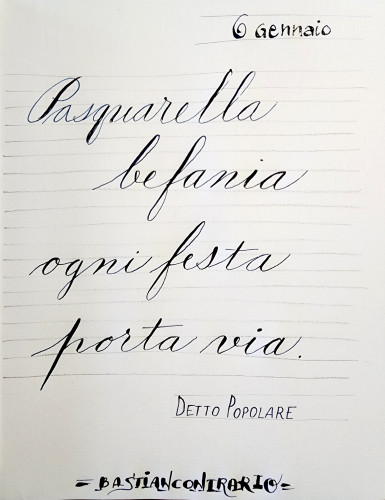 6 Gennaio
Pasquarella
befania
ogni festa
porta via.
DETTO POPOLARE
= BASTIANCONTRARIO =